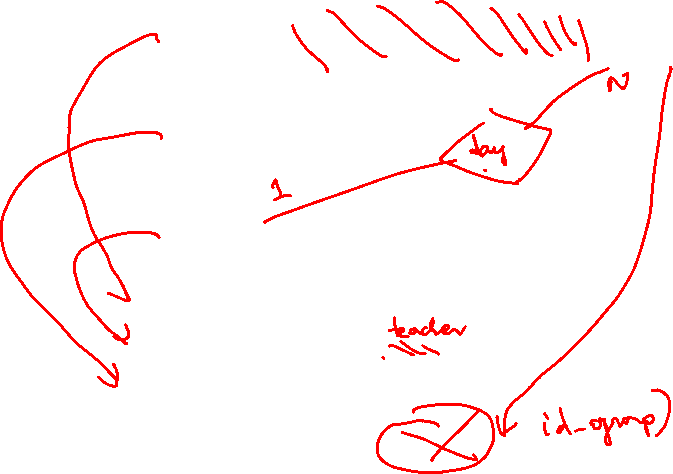 N
day
1
teacher
id_group)